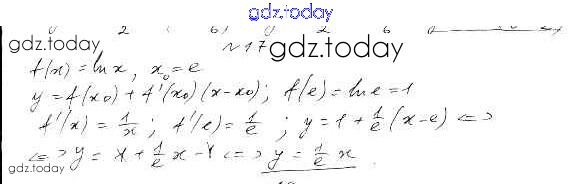 gdz.today
gdz.today
№17 gdz.today
f(x) = ln x, x₀ = e
y = f(x₀) + f'(x₀)(x-x₀); f(e) = ln e = 1
f'(x) = 1/x; f'(e) = 1/e; y = 1 + 1/e (x-e) <=>
<=> y = 1 + 1/e x - 1 <=> y = 1/e x
gdz.today